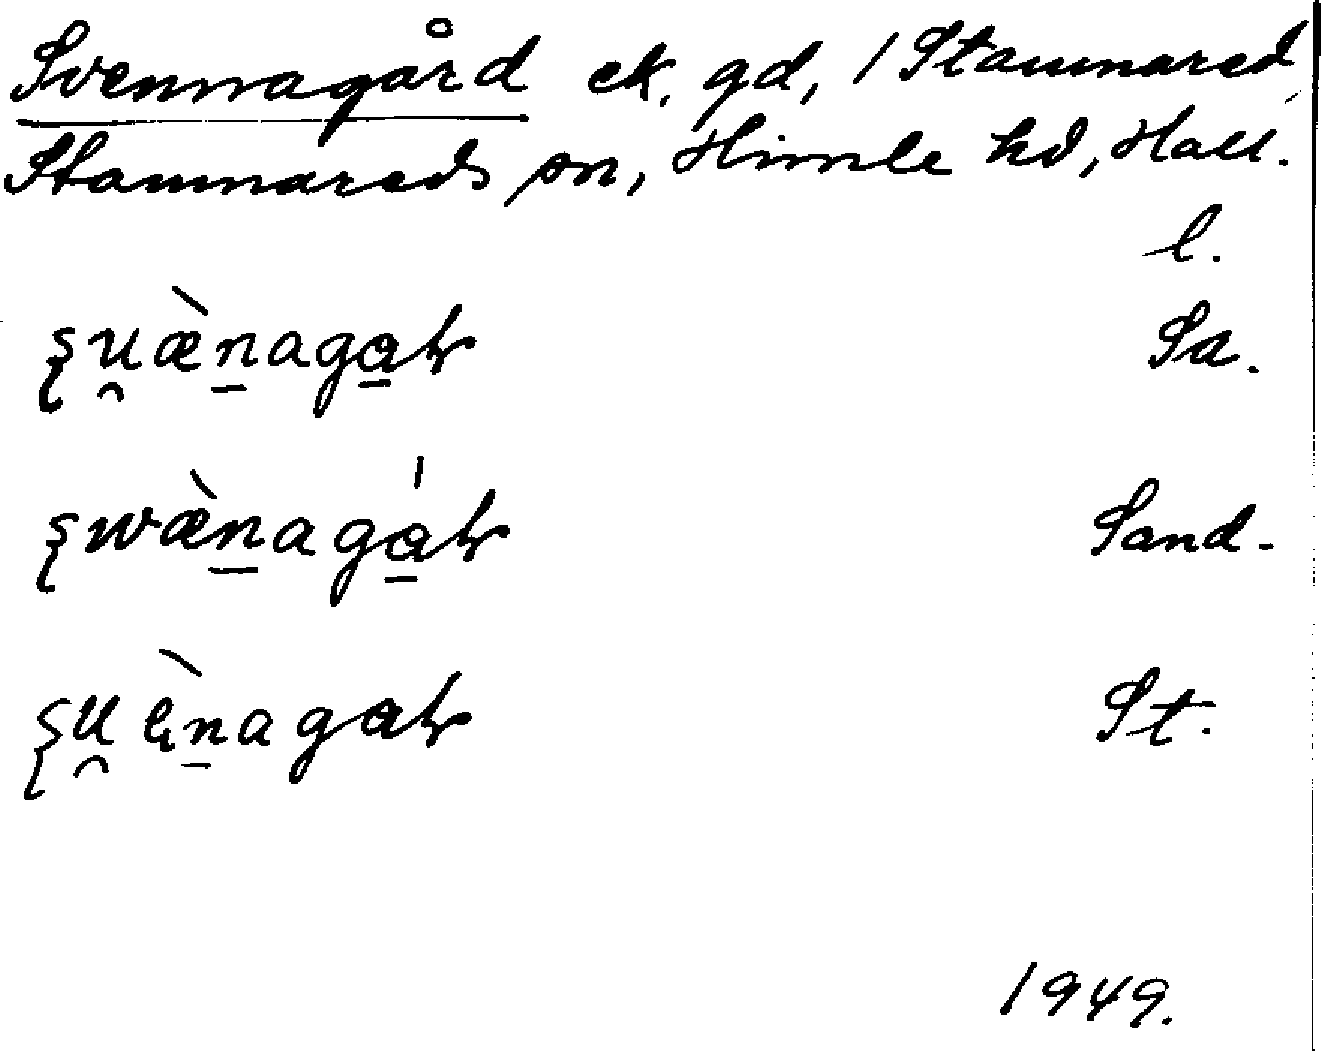 Svennagård ek. gd, 1 Stamnared,
Stamnareds sn, Himle hd, Hall.
l.
ʂu̯æ̀n̠aga̠ɽ Sa.
ʂwæ̀n̠agá̠ɽ Sand.
ʂu̯èn̠agaɽ St.
1949.